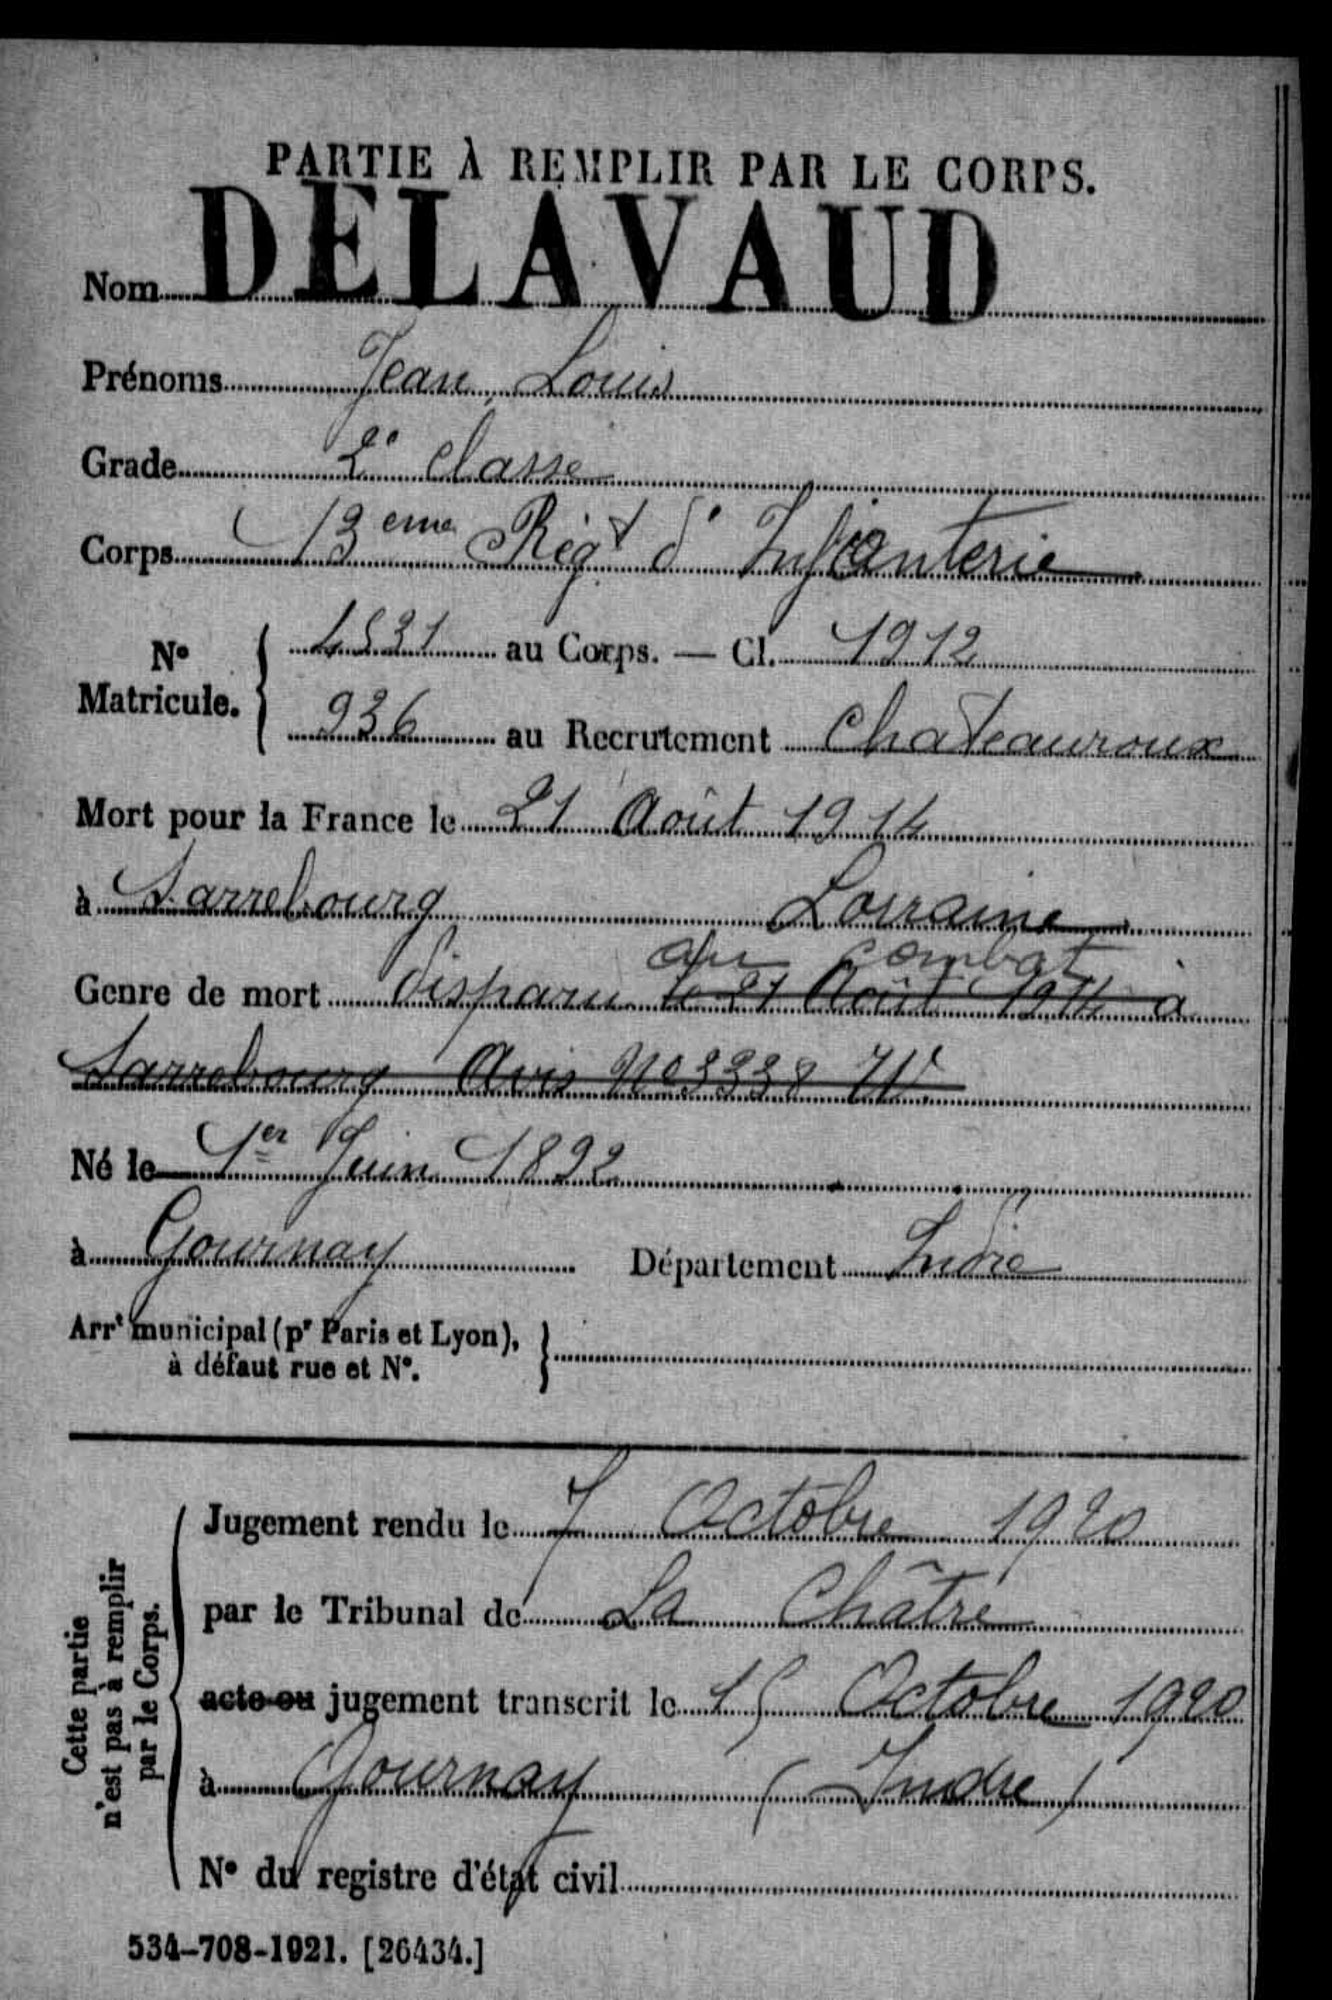 PARTIE À REMPLIR PAR LE CORPS.
Nom DELAVAUD
Prénoms Jean, Louis
Grade 2e classe
Corps 13eme Régt d'Infanterie
No Matricule. { 4531 au Corps. — Cl. 1912
936 au Recrutement Chateauroux
Mort pour la France le 21 Août 1914
à Sarrebourg Lorraine
au combat
Genre de mort disparu le 21 Août 1914 à
Sarrebourg Avis No 3338
Né le 1er Juin 1892
à Gournay Département Indre
Arrt municipal (pr Paris et Lyon), }
à défaut rue et No.
Cette partie
n'est pas à remplir
par le Corps.
Jugement rendu le 7 Octobre 1920
par le Tribunal de La Châtre
acte ou jugement transcrit le 15 Octobre 1920
à Gournay (Indre)
No du registre d'état civil
534-708-1921. [26434.]